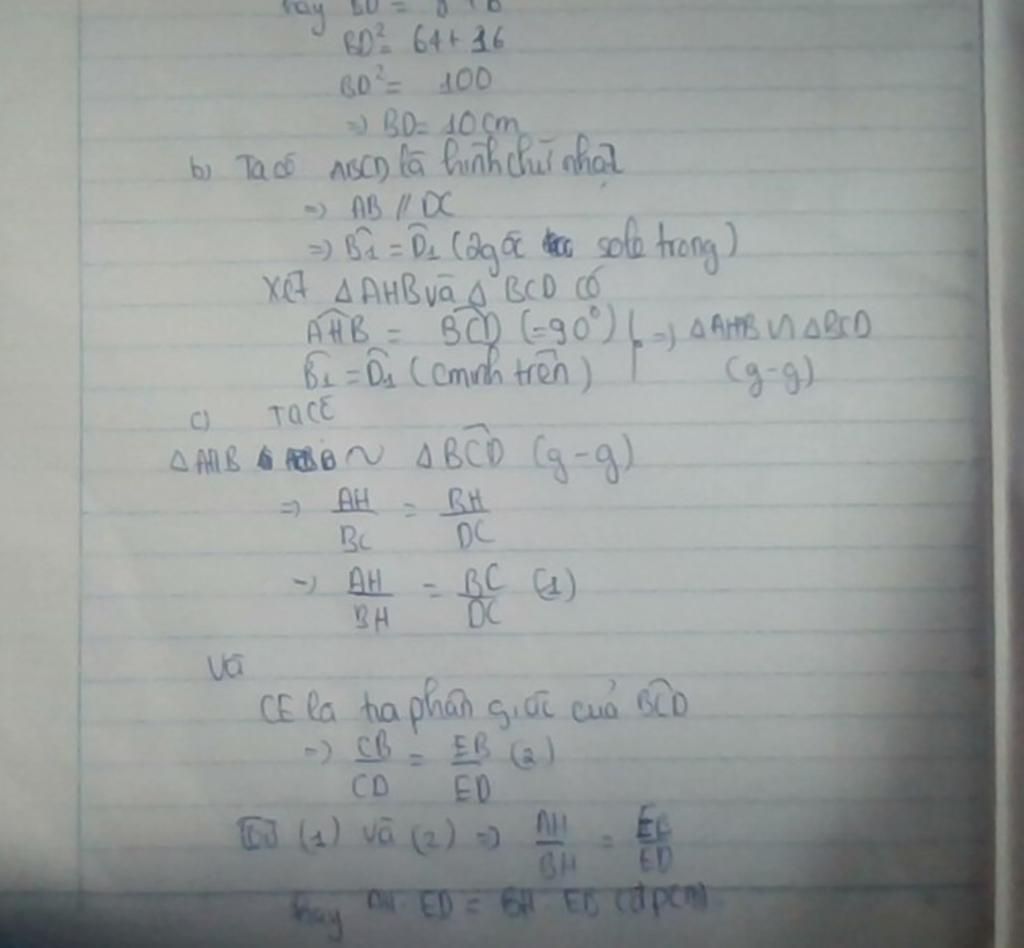 hay BD² = 8² + 6²
BD² = 64 + 36
BD² = 100
=> BD = 10 cm
b) Ta có ABCD là hình chữ nhật
=> AB // DC
=> B̂1 = D̂1 (2 góc so le trong)
Xét △AHB và △BCD có
AHB = BCD (=90°) } => △AHB ∽ △BCD
B̂1 = D̂1 (cminh trên) (g-g)
c) Ta có
△AHB ~ △BCD (g-g)
=> AH/BC = BH/DC
=> AH/BH = BC/DC (1)
Và
CE là tia phân giác của BCD
=> CB/CD = EB/ED (2)
(1) và (2) => AH/BH = EB/ED
hay AH . ED = BH . EB (đpcm)